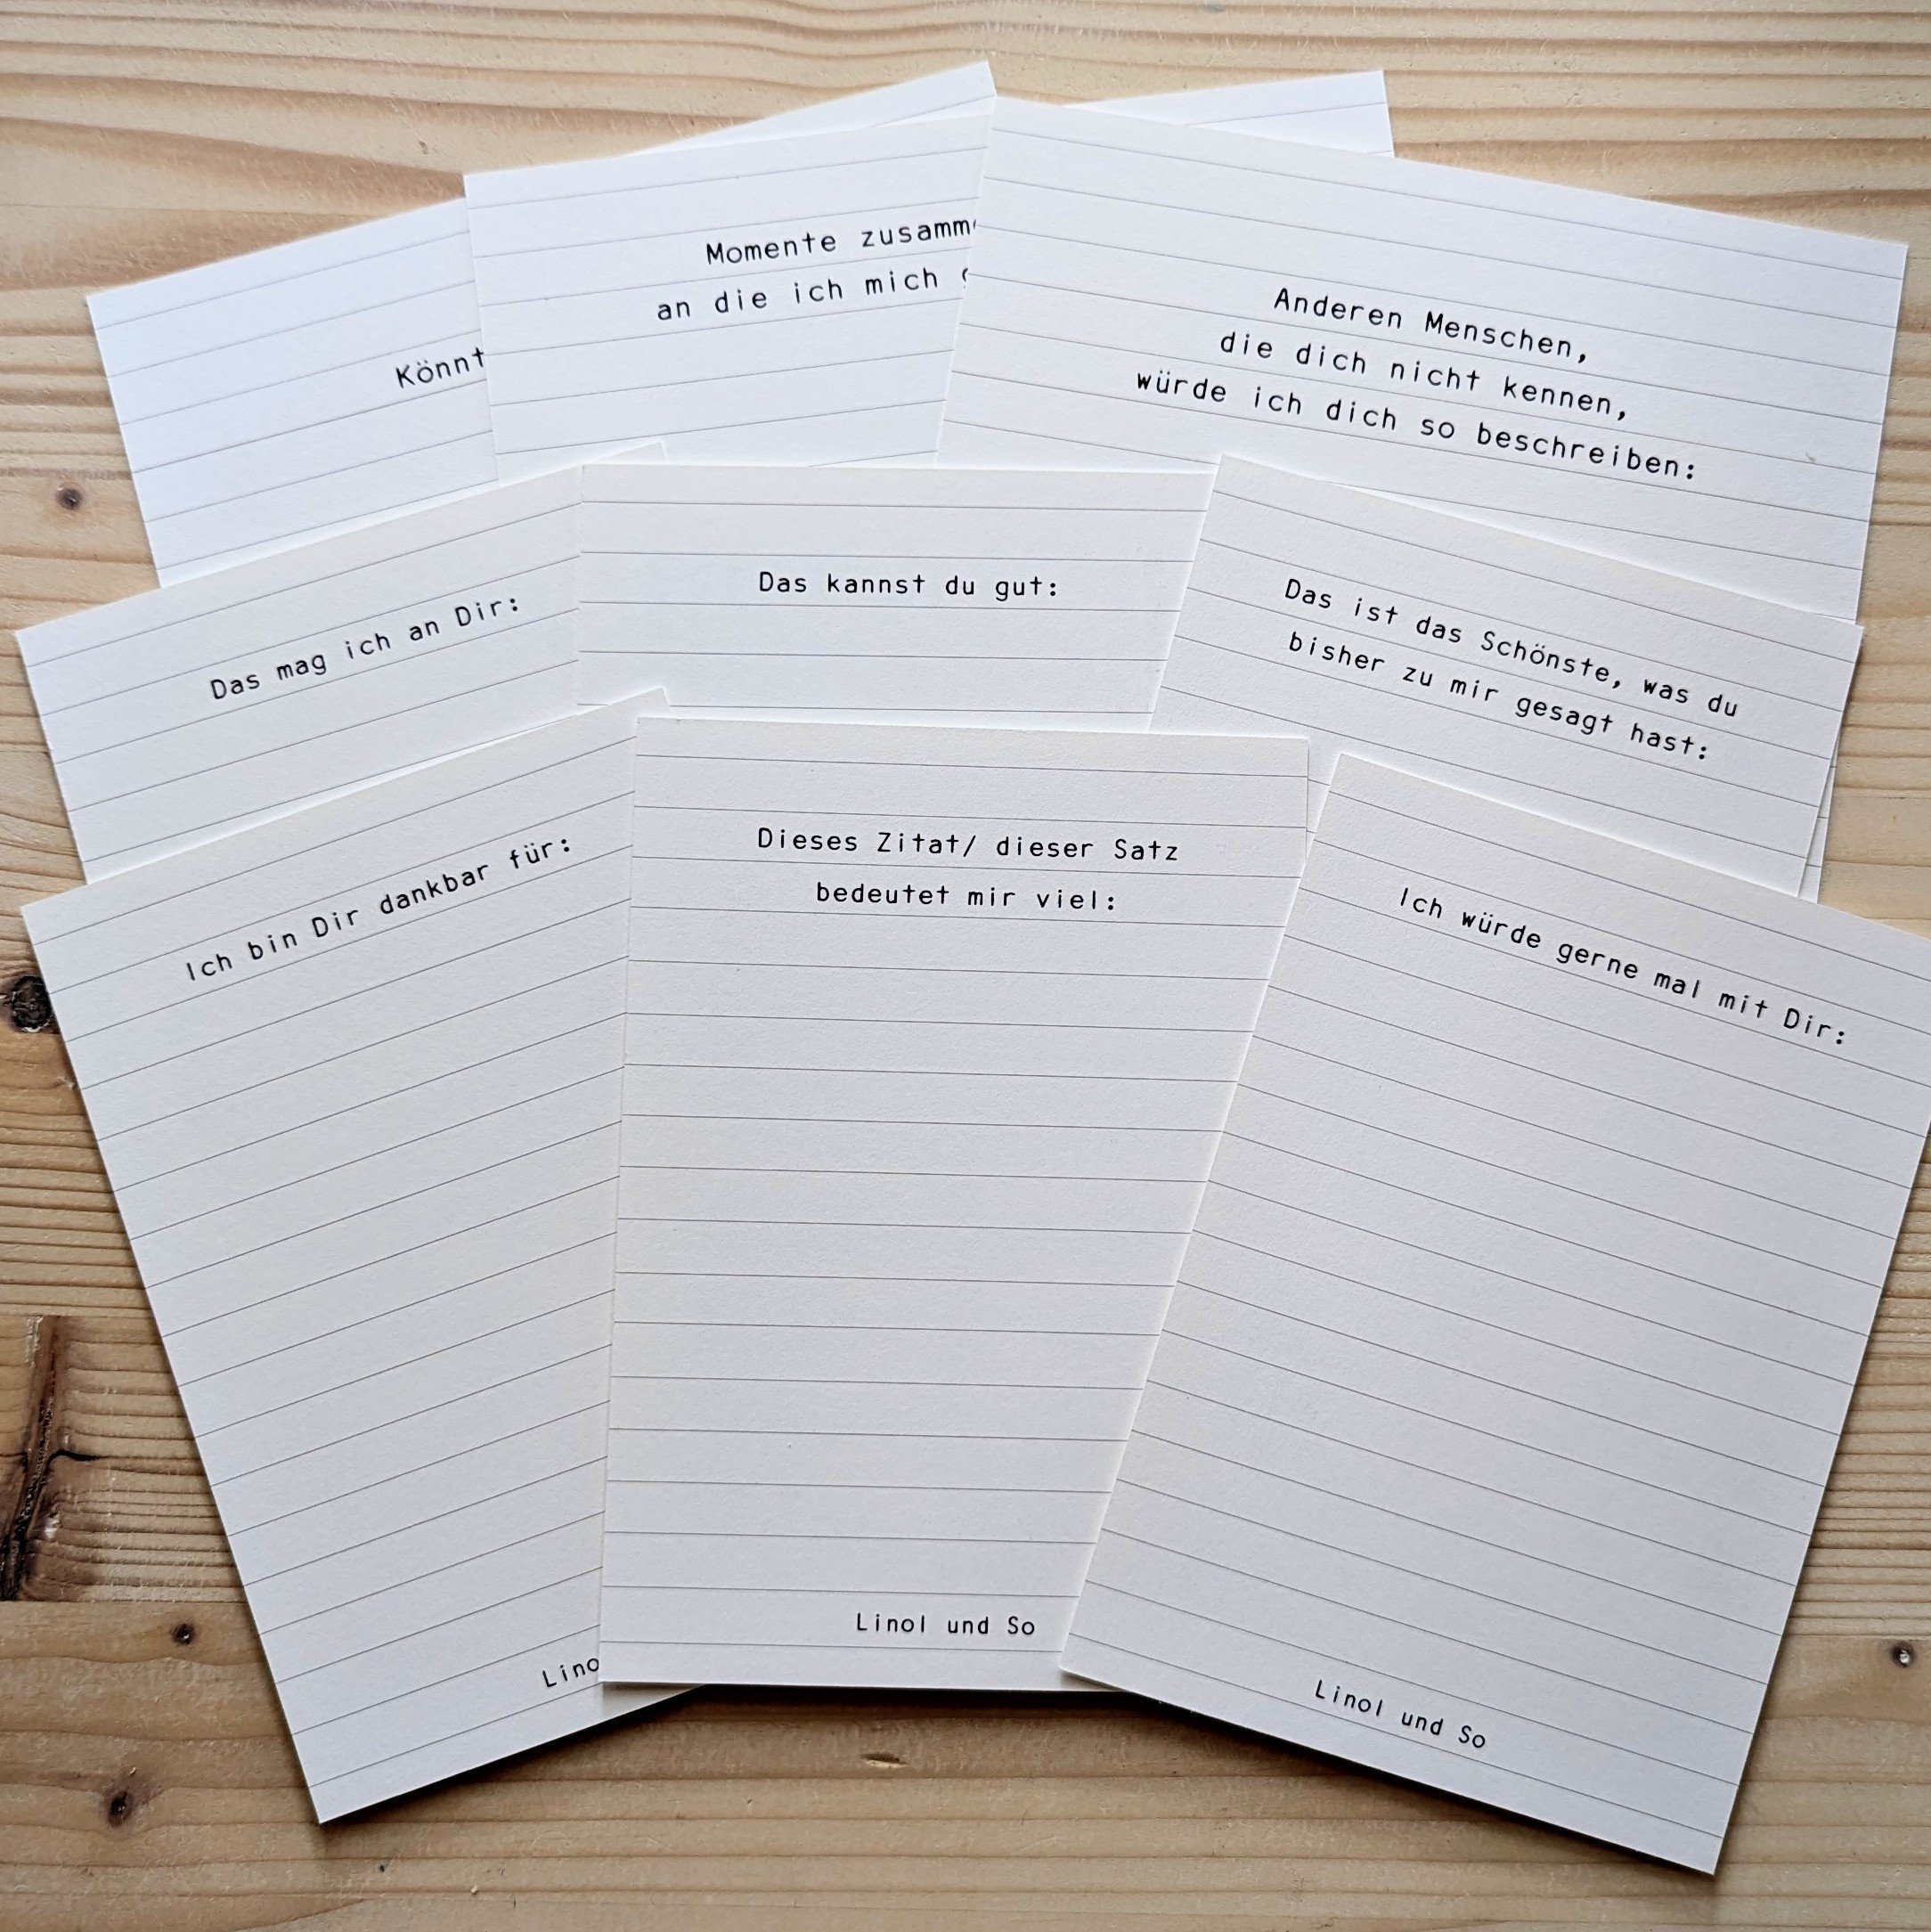 Momente
an die ich mich
Anderen Menschen,
die dich nicht kennen,
würde ich dich so beschreiben:
Das mag ich an Dir:
Das kannst du gut:
Das ist das Schönste, was du
bisher zu mir gesagt hast:
Ich bin Dir dankbar für:
Dieses Zitat/ dieser Satz
bedeutet mir viel:
Ich würde gerne mal mit Dir:
Linol und So
Linol und So